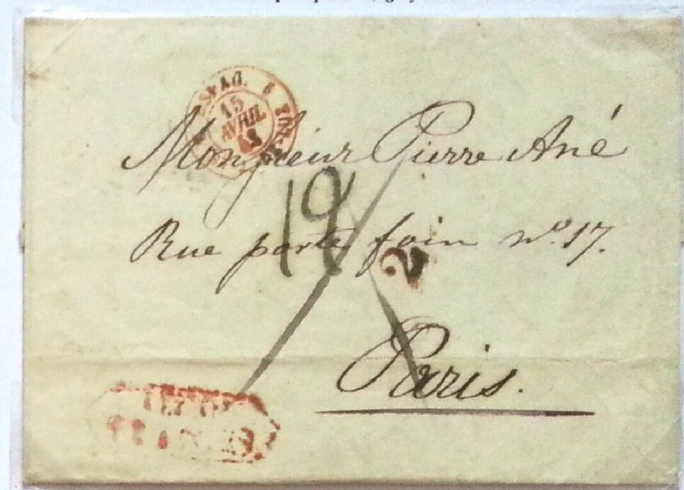 15
AVRIL
Monsieur Pierre Ané
19
Rue porte foin nº 17.
2
Paris.